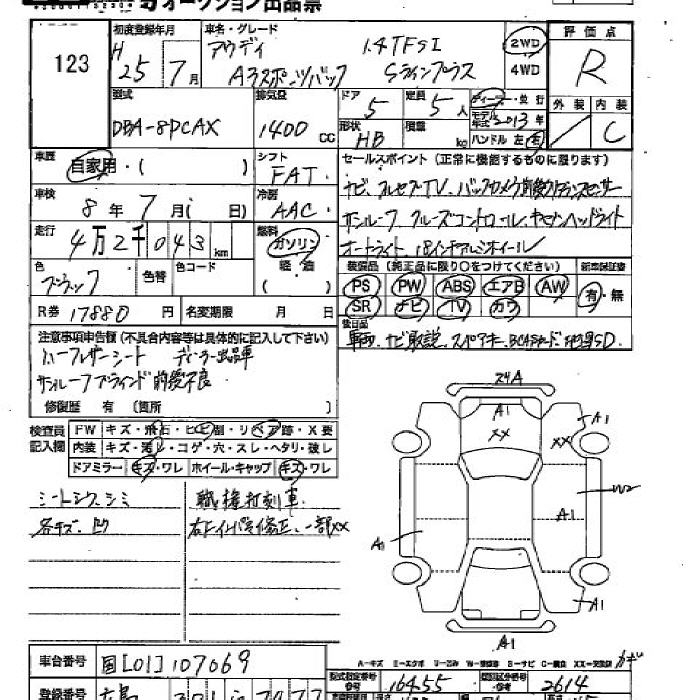 オークション出品票
123
初度登録年月
H 25年 7月
車名・グレード
アウディ 1.4TFSI
A3スポーツバック Sラインプラス
2WD
4WD
評価点
R
外装 内装
C
型式
DBA-8PCAX
排気量
1400 cc
ドア
5
定員
5人
形状
HB
積量
kg
ディーラー・並行
モデル年式 2013年
ハンドル 左 右
車歴
自家用・( )
シフト
FAT
セールスポイント(正常に機能するものに限ります)
車検
8年 7月( 日)
冷房
AAC
ナビ、フルセグTV、バックカメラ
サンルーフ クルーズコントロール、キセノンヘッドライト
オートライト、18インチアルミホイール
走行
4万2千043km
燃料
ガソリン
軽・油
( )
色
ブラック
色替
色コード
R券 17880円
名変期限 月 日
装備品(純正品に限り○をつけてください)
PS PW ABS エアB AW
SR ナビ TV カワ
新車保証書
有・無
後日品
車両、ナビ取説、スペアキー、
注意事項申告欄(不具合内容等は具体的に記入して下さい)
ハーフレザーシート ディーラー出品車
サンルーフブラインド
修復歴 有 〔箇所 〕
検査員記入欄
FW キズ・飛石・ヒビ割・リペア跡・X要
内装 キズ・汚レ・コゲ・穴・スレ・ヘタリ・破レ
ドアミラー キズ・ワレ ホイール・キャップ キズ・ワレ
シートシワ、シミ
各キズ、凹
職権打刻車
一部XX
24A
A1
XX
A1
XX
W2
A1
A1
A1
A1
車台番号 国[01]107069
登録番号
A-キズ
型式指定番号 16455
類別区分番号 2614